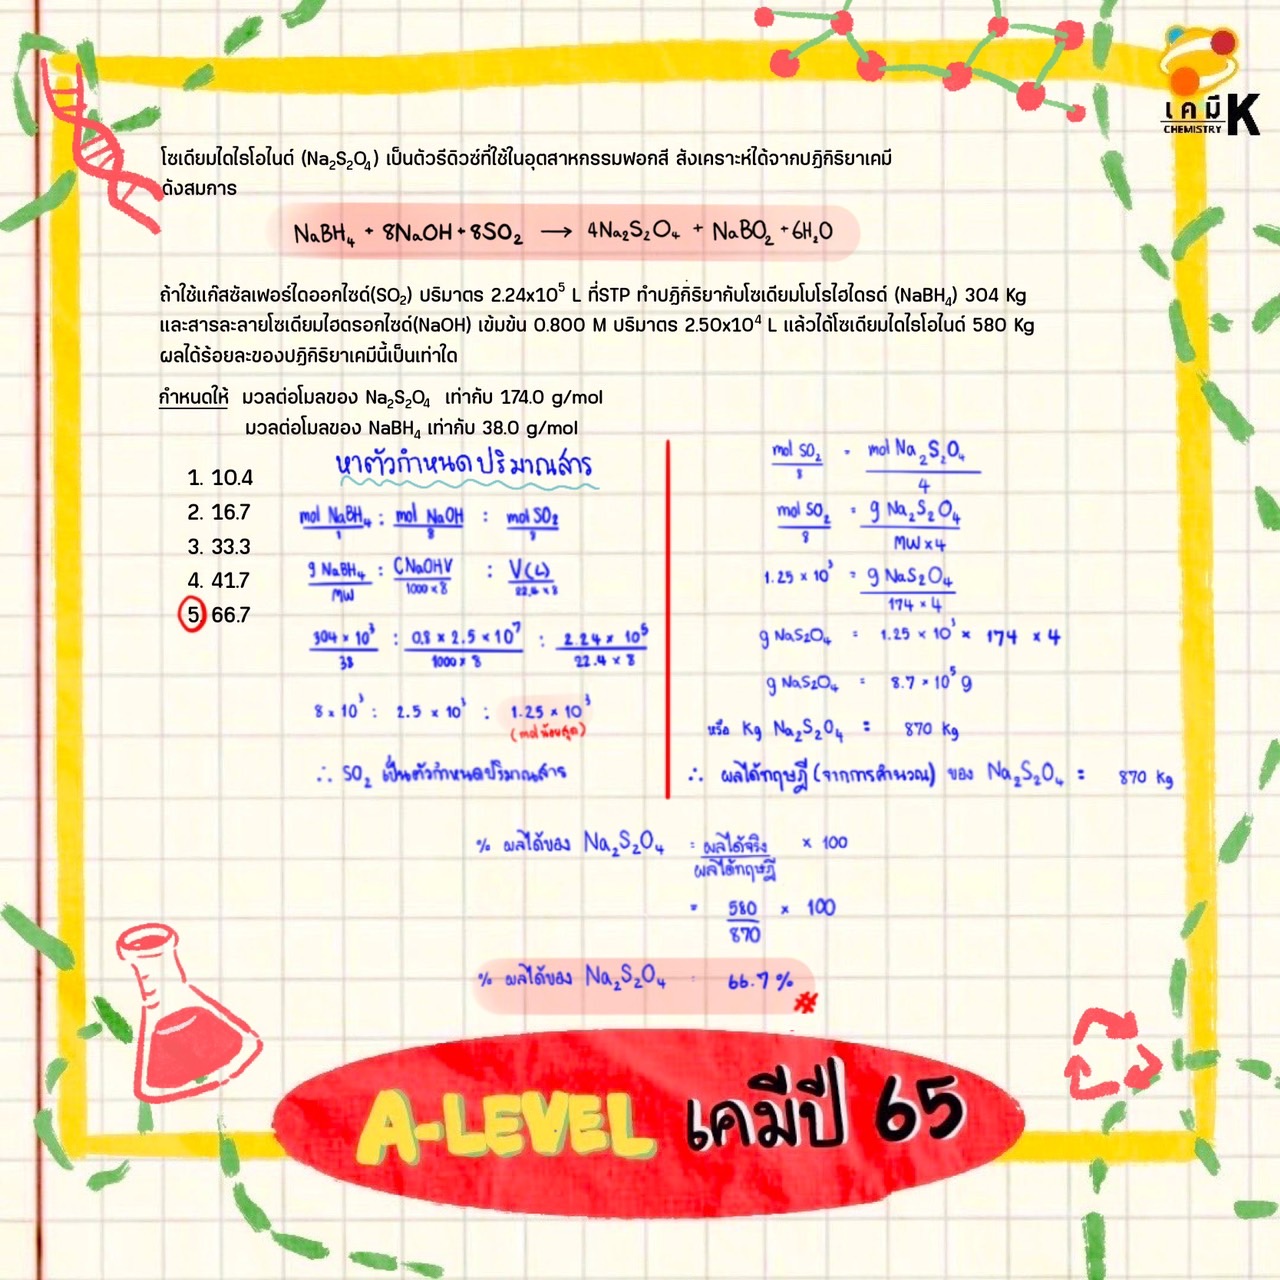 เคมี K
CHEMISTRY
โซเดียมไดไธโอไนต์ (Na₂S₂O₄) เป็นตัวรีดิวซ์ที่ใช้ในอุตสาหกรรมฟอกสี สังเคราะห์ได้จากปฏิกิริยาเคมี
ดังสมการ
NaBH₄ + 8NaOH + 8SO₂ → 4Na₂S₂O₄ + NaBO₂ + 6H₂O
ถ้าใช้แก๊สซัลเฟอร์ไดออกไซด์(SO₂) ปริมาตร 2.24x10⁵ L ที่STP ทำปฏิกิริยากับโซเดียมโบโรไฮไดรด์ (NaBH₄) 304 Kg
และสารละลายโซเดียมไฮดรอกไซด์(NaOH) เข้มข้น 0.800 M ปริมาตร 2.50x10⁴ L แล้วได้โซเดียมไดไธโอไนต์ 580 Kg
ผลได้ร้อยละของปฏิกิริยาเคมีนี้เป็นเท่าใด
กำหนดให้ มวลต่อโมลของ Na₂S₂O₄ เท่ากับ 174.0 g/mol
มวลต่อโมลของ NaBH₄ เท่ากับ 38.0 g/mol
1. 10.4
2. 16.7
3. 33.3
4. 41.7
5. 66.7
หาตัวกำหนดปริมาณสาร
mol NaBH₄ : mol NaOH : mol SO₂
1 8 8
g NaBH₄ : CNaOHV : V(L)
MW 1000 × 8 22.4 × 8
304 × 10³ : 0.8 × 2.5 × 10⁷ : 2.24 × 10⁵
38 1000 × 8 22.4 × 8
8 × 10³ : 2.5 × 10³ : 1.25 × 10³
(mol น้อยสุด)
∴ SO₂ เป็นตัวกำหนดปริมาณสาร
mol SO₂ = mol Na₂S₂O₄
8 4
mol SO₂ = g Na₂S₂O₄
8 MW × 4
1.25 × 10³ = g NaS₂O₄
174 × 4
g NaS₂O₄ = 1.25 × 10³ × 174 × 4
g NaS₂O₄ = 8.7 × 10⁵ g
หรือ Kg Na₂S₂O₄ = 870 Kg
∴ ผลได้ทฤษฎี (จากการคำนวณ) ของ Na₂S₂O₄ = 870 Kg
% ผลได้ของ Na₂S₂O₄ = ผลได้จริง × 100
ผลได้ทฤษฎี
= 580 × 100
870
% ผลได้ของ Na₂S₂O₄ = 66.7 % #
A-LEVEL เคมีปี 65